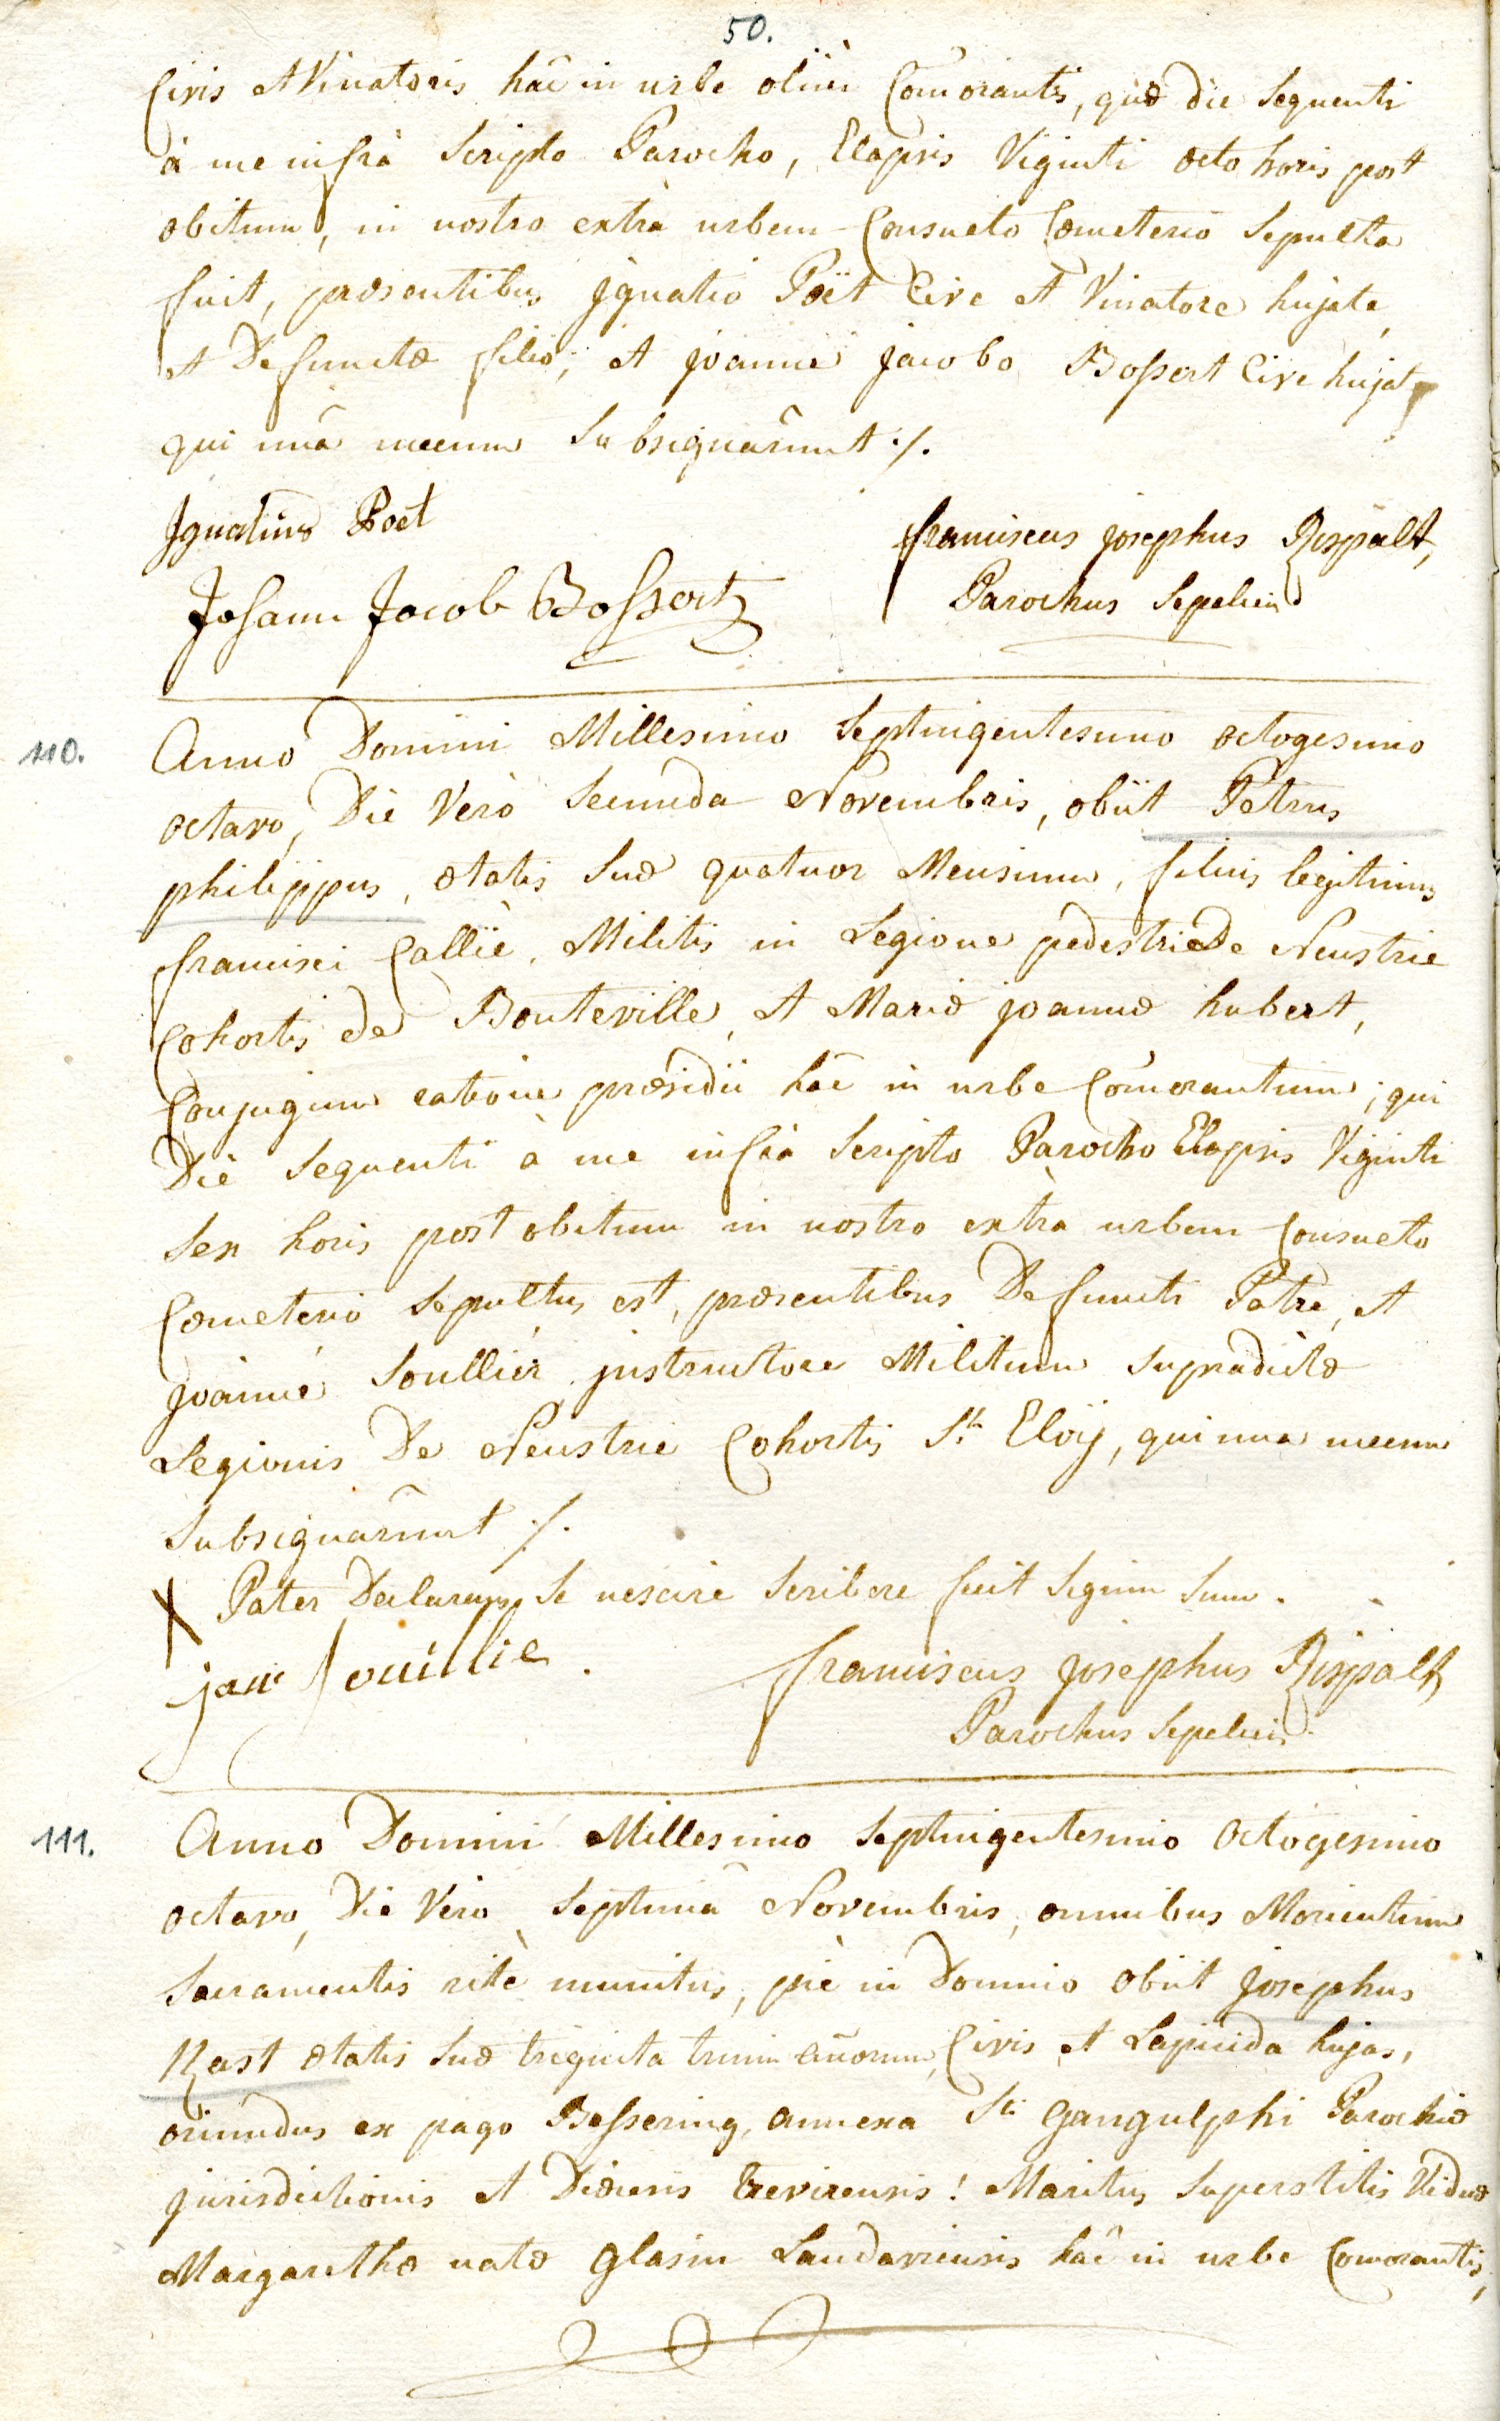 50.
Civis et Vinatoris hâc in urbe olim Com̃orantis, quæ die Sequenti
à me infrà Scripto Parocho, Elapsis Viginti octo horis post
obitum, in nostro extrà urbem Consueto Cœmeterio Sepulta
fuit, præsentibus jgnatio Poët Cive et Vinatore hujate,
et Defunctæ filio; et joanne jacobo Bossert Cive hujate
qui unà mecum Subsignarũnt ./.
Jgnatius Poet
franciscus josephus Rispalt,
Johann Jacob Bossert
Parochus Sepeliens
110.
Anno Domini Millesimo Septingentesimo octogesimo
octavo, Die Verò Secunda Novembris, obiit Petrus
philippus, ætatis Suæ quatuor Mensium, filius legitimus
francisci Callïe, Militis in Legione pedestri De Neustrie
Cohortis de Bouteville, et Mariæ joannæ hubert,
Conjugum ratione præsidii hâc in urbe Com̃orantium; qui
Die Sequenti à me infrà Scripto Parocho Elapsis Viginti
Sex horis post obitum in nostro extrà urbem Consueto
Cœmeterio Sepultus est, præsentibus Defuncti Patre, et
joanne Soullier, jnstructore Militum Supradictæ
Legionis De Neustrie Cohortis St. Eloÿ, qui una mecum
Subsignarũnt ./.
X Pater Declarans Se nescire Scribere fecit Signum Suum.
jan Souillie
franciscus josephus Rispalt
Parochus Sepeliens
111.
Anno Domini Millesimo Septingentesimo Octogesimo
octavo, Die Vero Septimâ Novembris, omnibus Morientium
Sacramentis ritè munitus, piè in Domino obiit josephus
Rast ætatis Suæ triginta trium añorum, Civis et Lapicida hujas,
oriundus ex pago Bessering, annexa Sti Gangulphi Parochiæ
jurisdictionis et Diœcesis trevirensis! Maritus Superstitis Viduæ
Margarethæ natæ Glasin Landaviensis hâc in urbe Comorantis,